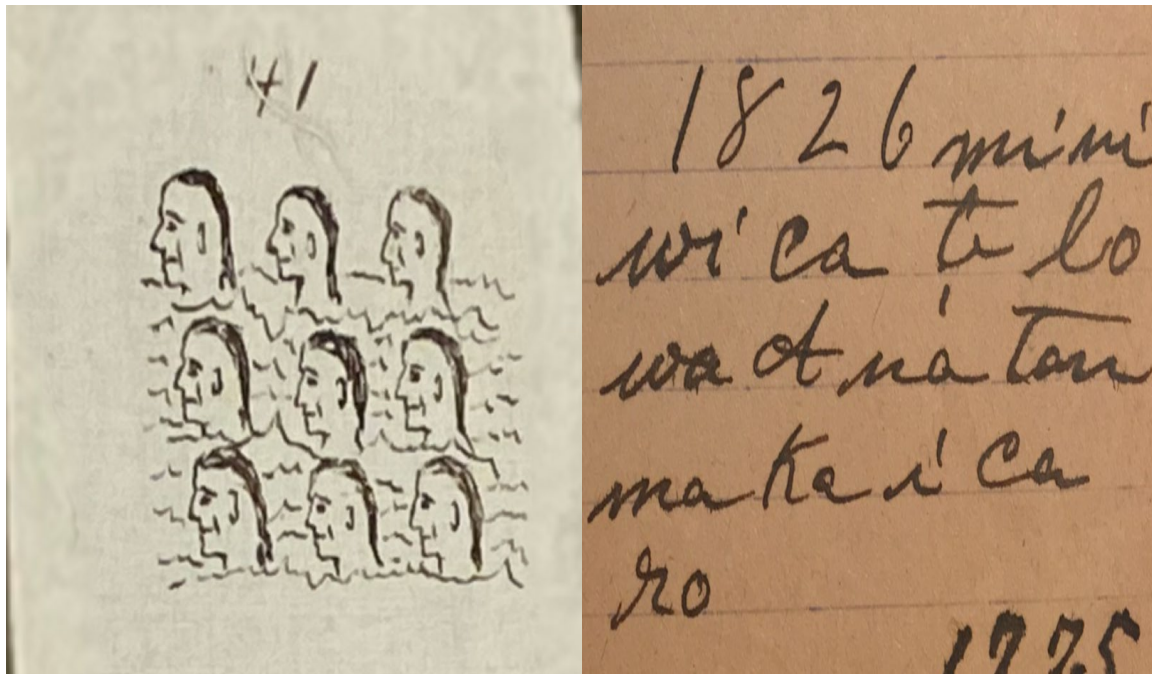 41
1826 mini
wi ca te lo
wa ot ná tan
ma ka i ca
ro
1775